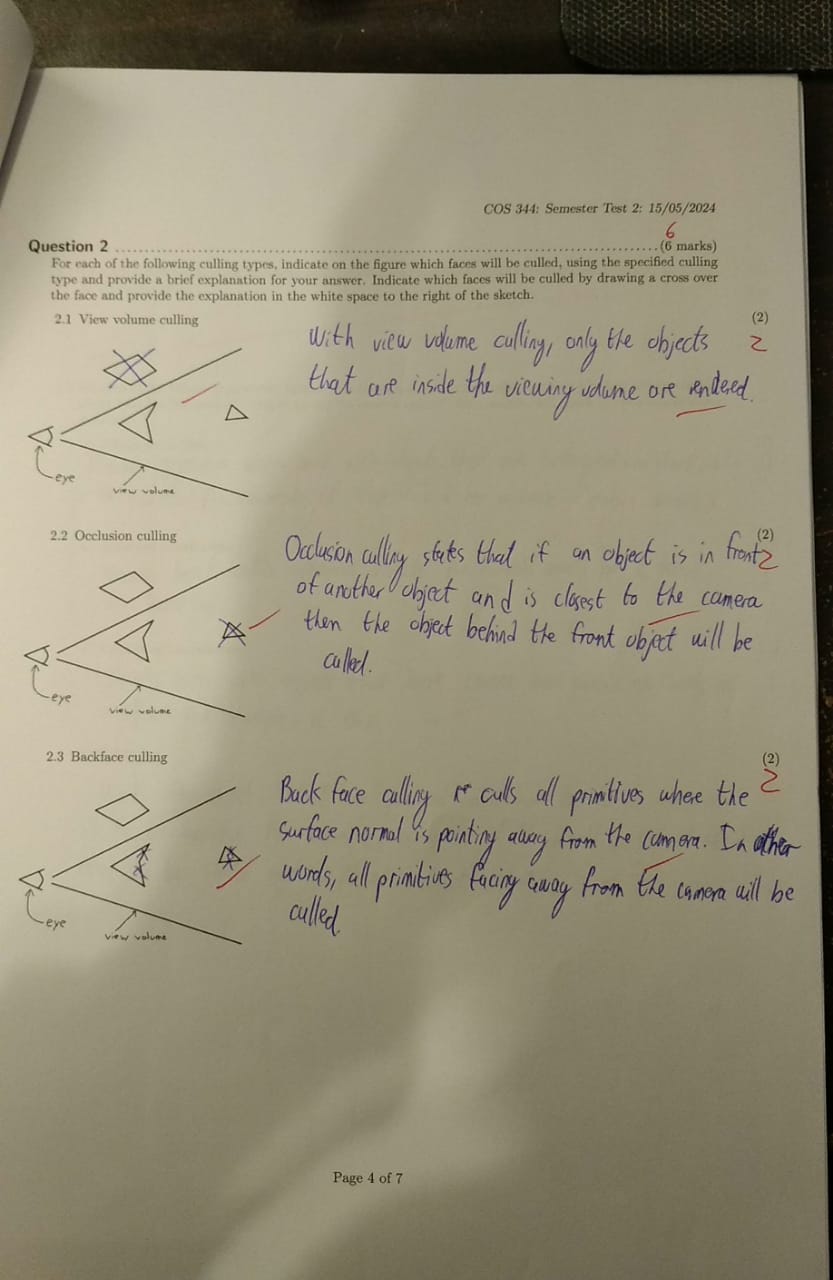 COS 344: Semester Test 2: 15/05/2024
6
Question 2 ........................................................ (6 marks)
For each of the following culling types, indicate on the figure which faces will be culled, using the specified culling
type and provide a brief explanation for your answer. Indicate which faces will be culled by drawing a cross over
the face and provide the explanation in the white space to the right of the sketch.
2.1 View volume culling (2)
2
With view volume culling, only the objects
that are inside the viewing volume are rendered.
eye
view volume
2.2 Occlusion culling (2)
2
Occlusion culling states that if an object is in front
of another object and is closest to the camera
then the object behind the front object will be
culled.
eye
view volume
2.3 Backface culling (2)
2
Back face culling culls all primitives where the
surface normal is pointing away from the camera. In other
words, all primitives facing away from the camera will be
culled.
eye
view volume
Page 4 of 7